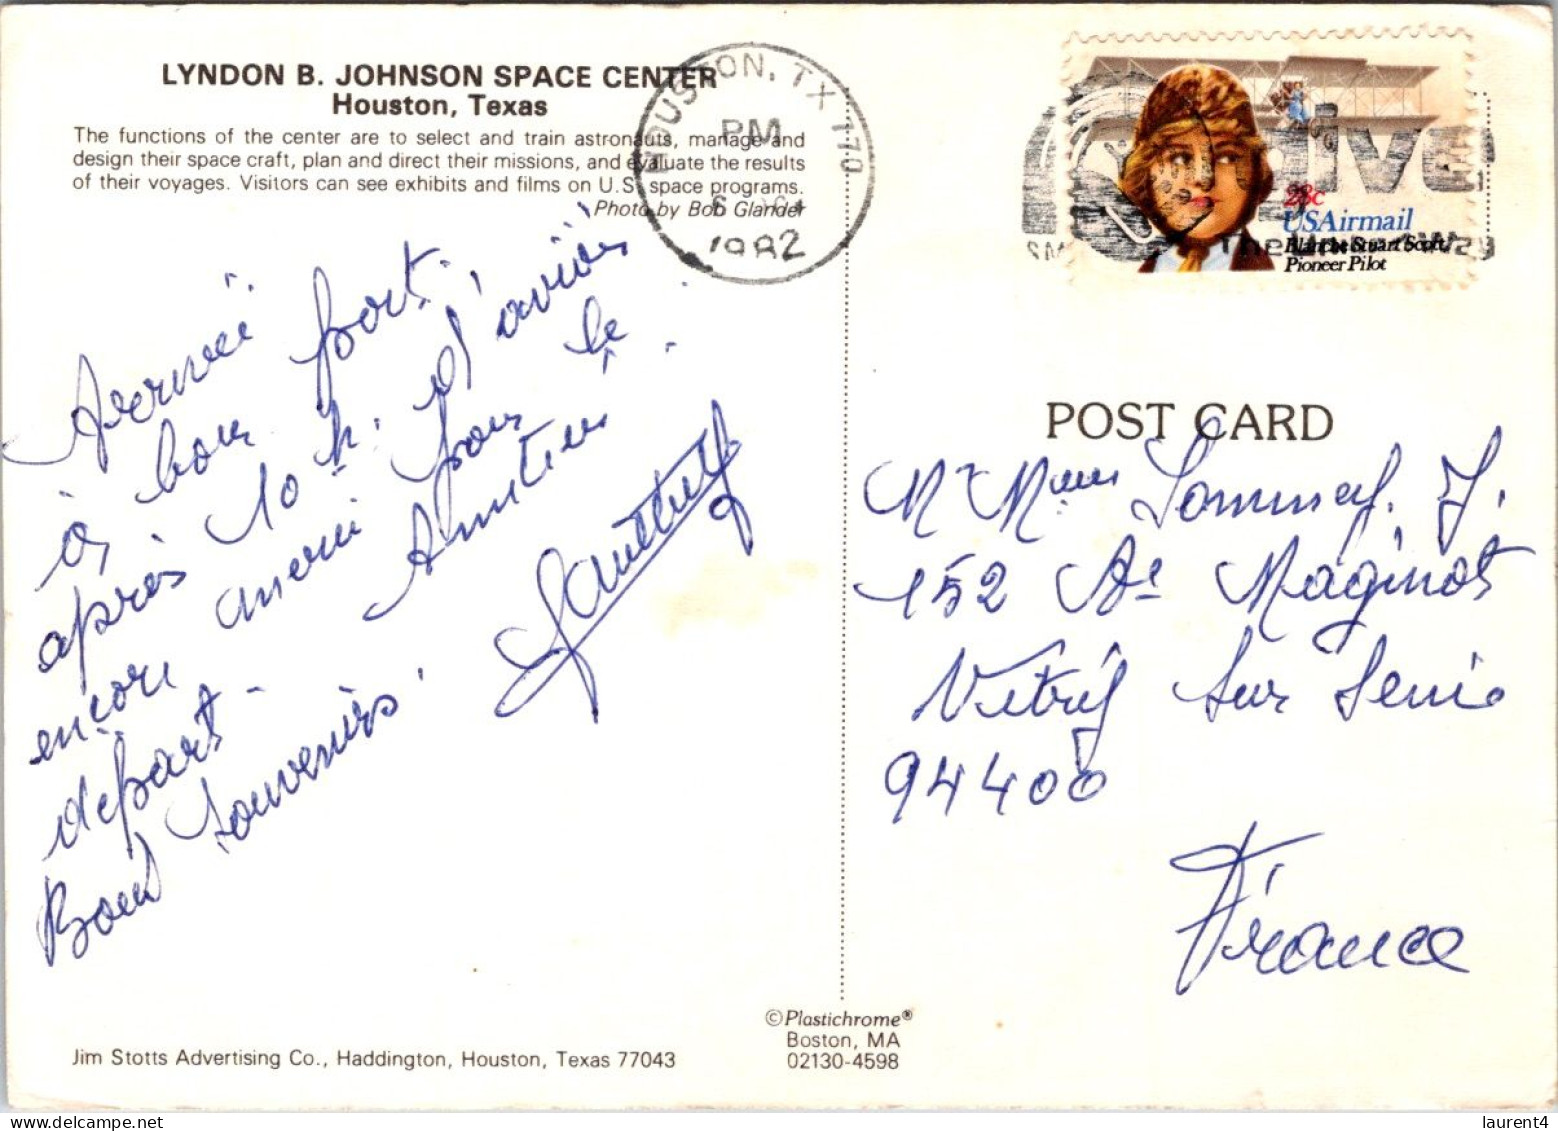 LYNDON B. JOHNSON SPACE CENTER
Houston, Texas
The functions of the center are to select and train astronauts, manage and
design their space craft, plan and direct their missions, and evaluate the results
of their voyages. Visitors can see exhibits and films on U.S. space programs.
Photo by Bob Glander
HOUSTON, TX 770
PM
1982
28c
USAirmail
Blanche Stuart Scott,
Pioneer Pilot
Give
The Way
Arrivée
à bon port
après 10 h. d'avion
encore merci pour le
départ -
Bons souvenirs
POST CARD
Mr Mme Sommer J.
152 Av Maginot
Vitry sur Seine
94400
France
©Plastichrome®
Boston, MA
02130-4598
Jim Stotts Advertising Co., Haddington, Houston, Texas 77043
laurent4